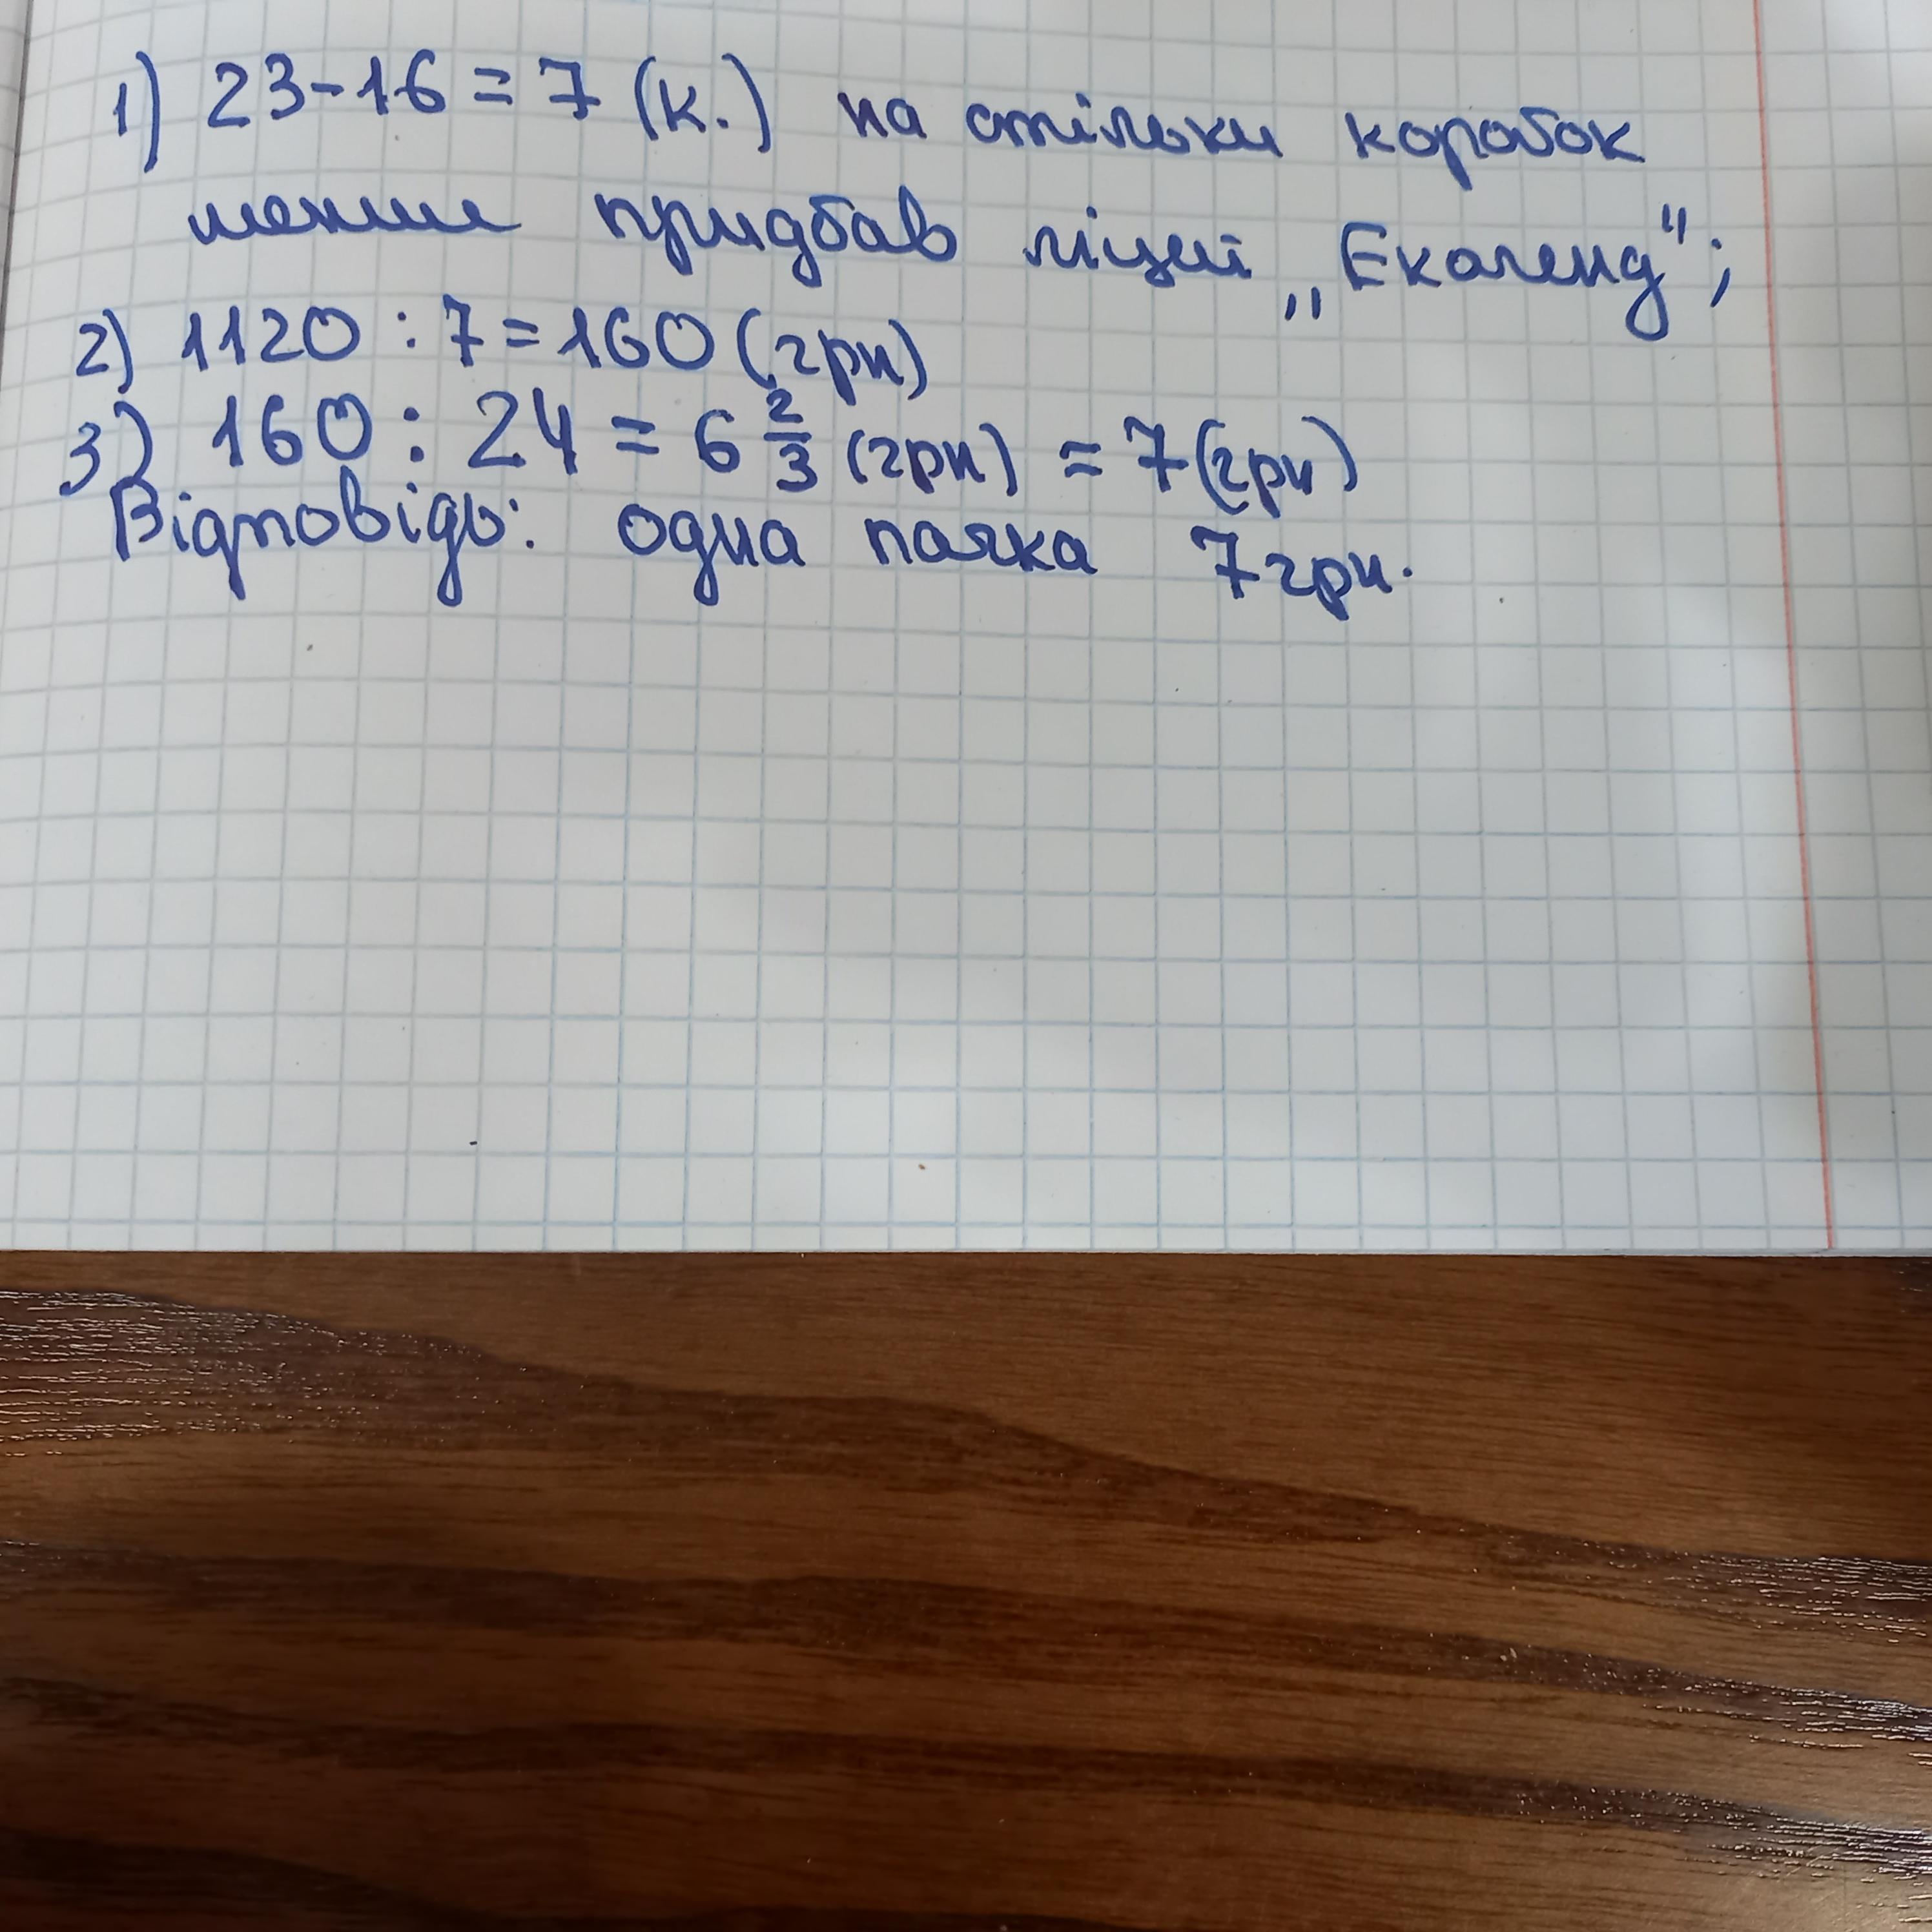 1) 23-16=7 (к.) на стільки коробок
менше придбав ліцей „Еколенд";
2) 1120 : 7=160 (грн)
3) 160 : 24 = 6 2/3 (грн) ≈ 7(грн)
Відповідь: одна пачка 7грн.